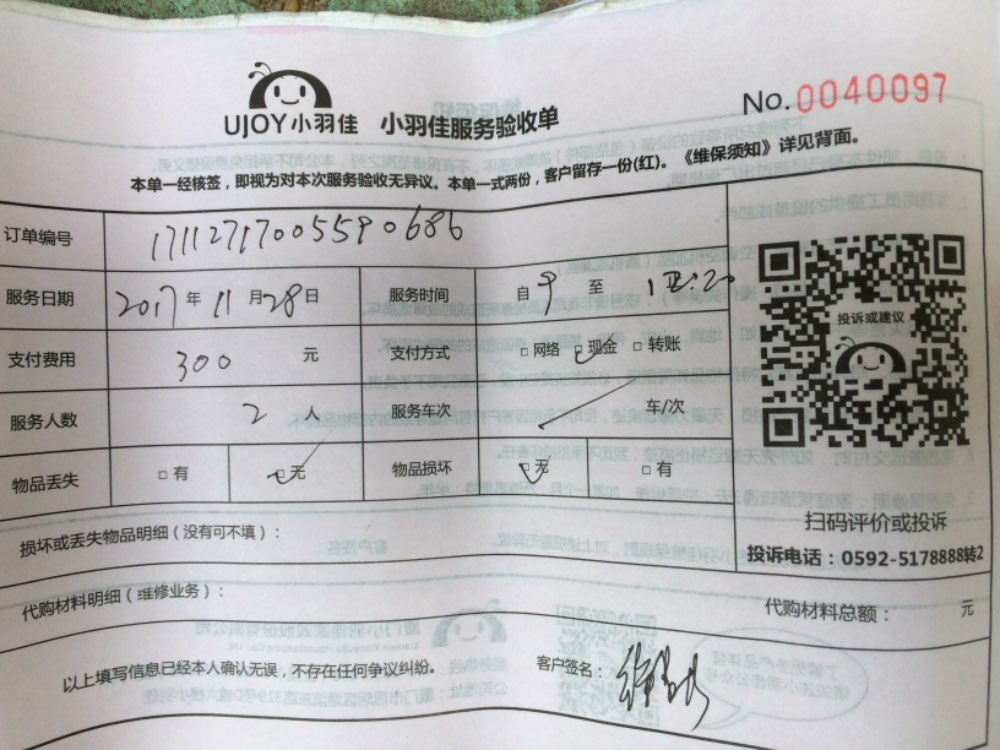 No.0040097
UJOY小羽佳 小羽佳服务验收单
本单一经核签，即视为对本次服务验收无异议。本单一式两份，客户留存一份(红)。《维保须知》详见背面。
订单编号 17112717005590686
服务日期 2017年11月28日 服务时间 自9至12:20
支付费用 300元 支付方式 □网络 □现金 □转账
服务人数 2人 服务车次 车/次
物品丢失 □有 □无 物品损坏 □无 □有
投诉或建议
扫码评价或投诉
投诉电话：0592-5178888转2
损坏或丢失物品明细（没有可不填）：
代购材料明细（维修业务）： 代购材料总额： 元
以上填写信息已经本人确认无误，不存在任何争议纠纷。 客户签名：